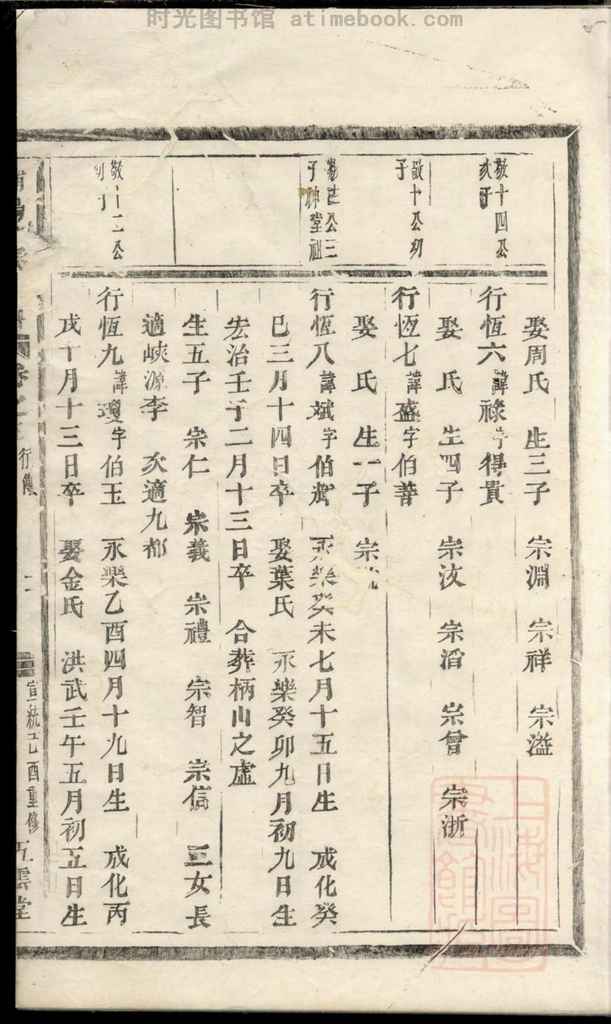 时光图书馆 atimebook.com
娶周氏 生三子 宗淵 宗祥 宗溢
敬十四公
次子
行恆六 諱祿 字得貴
娶 氏 生四子 宗汝 宗滔 宗曾 宗浙
敬十公初
子
行恆七 諱盛 字伯善
娶 氏 生一子 宗
公三
子 神堂祖
行恆八 諱斌 字伯 永樂癸未七月十五日生 成化癸
巳三月十四日卒 娶葉氏 永樂癸卯九月初九日生
宏治壬子二月十三日卒 合葬柄山之虛
生五子 宗仁 宗義 宗禮 宗智 宗信 三女長
適峽源李 次適九都
敬十二公
初子
行恆九 諱瓊 字伯玉 永樂乙酉四月十九日生 成化丙
戌十月十三日卒 娶金氏 洪武壬午五月初五日生
行傳 二 宣統己酉重修 五雲堂